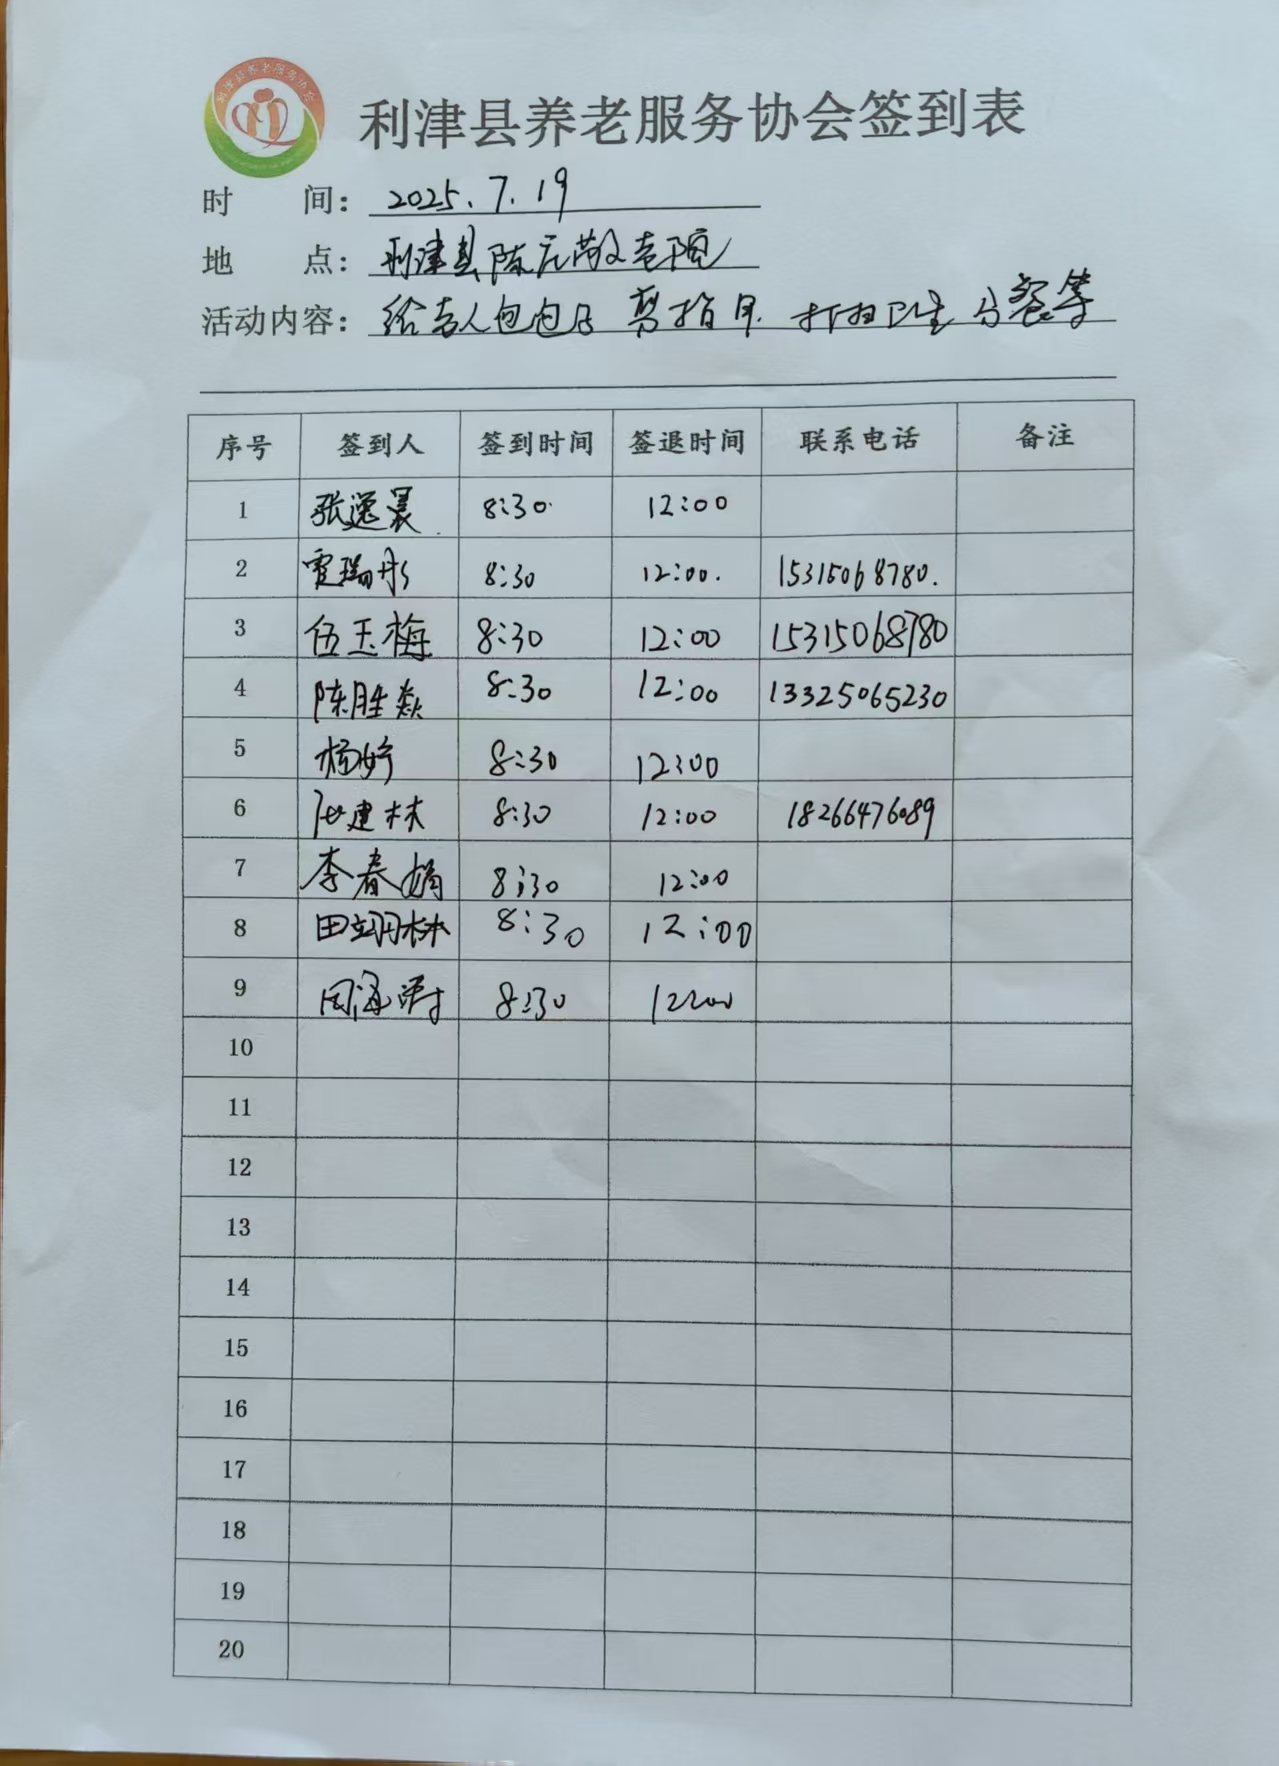 利津县养老服务协会
利津县养老服务协会签到表
时 间： 2025.7.19
地 点： 利津县陈庄敬老院
活动内容： 给老人包包子 剪指甲 打扫卫生 分餐等
序号 签到人 签到时间 签退时间 联系电话 备注
1 张逸晨 8:30 12:00
2 霍瑞彤 8:30 12:00. 15315068780.
3 伍玉梅 8:30 12:00 15315068780
4 陈胜焱 8:30 12:00 13325065230
5 杨婷 8:30 12:00
6 建林 8:30 12:00 18266476089
7 李春娟 8:30 12:00
8 田翊林 8:30 12:00
9 周海涛 8:30 12:00
10
11
12
13
14
15
16
17
18
19
20